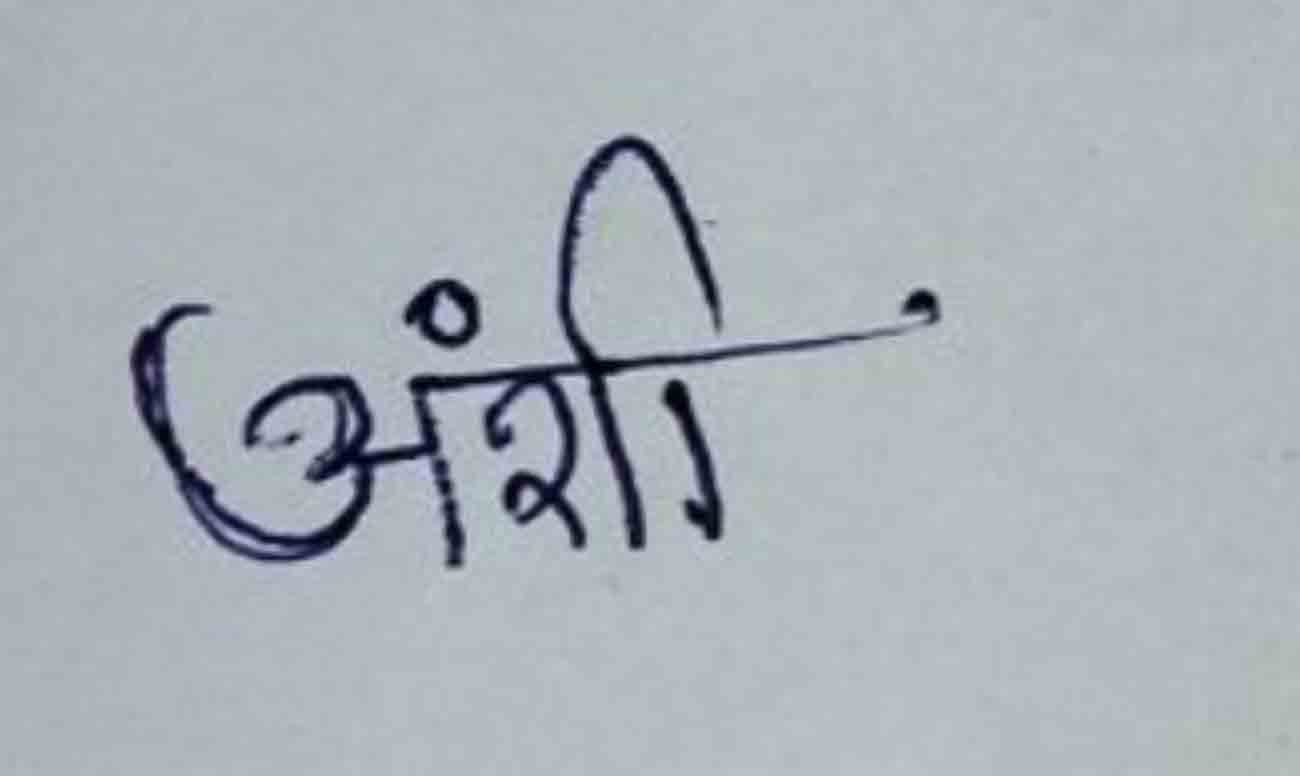 अंशी